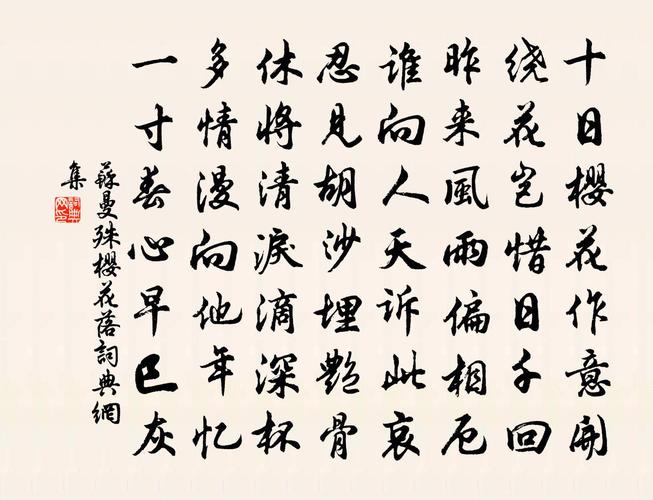 十日櫻花作意開
绕花岂惜日千回
昨来風雨偏相厄
谁向人天诉此哀
忍見胡沙埋艷骨
休将清淚滴深杯
多情漫向他年忆
一寸春心早已灰
蘇曼殊櫻花落詞典網
集